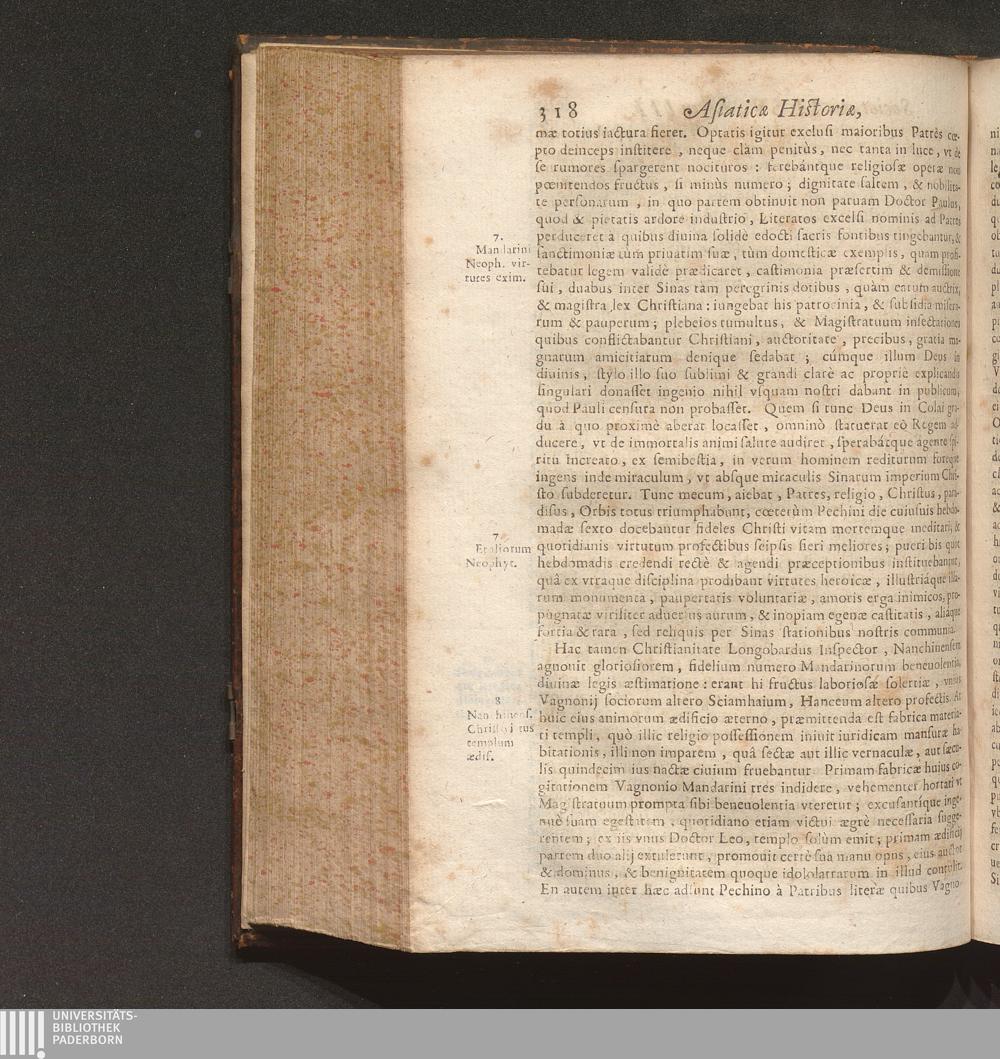 318 Asiaticæ Historiæ,
mæ totius iactura fieret. Optatis igitur exclusi maioribus Patrès cœ-
pto deinceps institere, neque clàm penitùs, nec tanta in luce, vt de
se rumores spargerent nocituros : ferebántque religiosæ operæ non
pœnitendos fructus, si minùs numero ; dignitate saltem, & nobilita-
te personarum, in quo partem obtinuit non paruam Doctor Paulus,
quod & pietatis ardore industrio, Literatos excelsi nominis ad Patres
perduceret à quibus diuina solidè edocti sacris fontibus tingebantur, &
sanctimoniæ tùm priuatim suæ, tùm domesticæ exemplis, quam profi-
tebatur legem validè prædicaret, castimonia præsertim & demissione
sui, duabus inter Sinas tàm peregrinis dotibus, quàm earum auctrix,
& magistra lex Christiana : iungebat his patrocinia, & subsidia misera-
rum & pauperum ; plebeios tumultus, & Magistratuum insectationes
quibus conflictabantur Christiani, auctoritate, precibus, gratia ma-
gnarum amicitiarum denique sedabat ; cúmque illum Deus in
diuinis, stylo illo suo sublimi & grandi clarè ac propriè explicandis
singulari donasset ingenio nihil vsquam nostri dabant in publicum,
quod Pauli censura non probasset. Quem si tunc Deus in Colai gra-
du à quo proximè aberat locasset, omninò statuerat eò Regem ad-
ducere, vt de immortalis animi salute audiret, sperabátque agente spi-
ritu increato, ex semibestia, in verum hominem rediturum foreque
ingens inde miraculum, vt absque miraculis Sinarum imperium Chri-
sto subderetur. Tunc mecum, aiebat, Patres, religio, Christus, para-
disus, Orbis totus triumphabunt, cœterùm Pechini die cuiusuis hebdo-
madæ sexto docebantur fideles Christi vitam mortemque meditari, &
quotidianis virtutum profectibus seipsis fieri meliores ; pueri bis quot
hebdomadis credendi rectè & agendi præceptionibus instituebantur,
quâ ex vtraque disciplina prodibant virtutes heroicæ, illustriáque illa-
rum monumenta, paupertatis voluntariæ, amoris erga inimicos, pro-
pugnatæ viriliter aduersus aurum, & inopiam egenæ castitatis, aliáque
fortia & rara, sed reliquis per Sinas stationibus nostris communia.
Hac tamen Christianitate Longobardus Inspector, Nanchinensem
agnouit gloriosiorem, fidelium numero Mandarinorum beneuolentia,
diuinæ legis æstimatione : erant hi fructus laboriosæ solertiæ, vnius
Vagnonij sociorum altero Sciamhaium, Hanceum altero profectis. At
huic eius animorum ædificio æterno, præmittenda est fabrica materia-
ti templi, quò illic religio possessionem iniuit iuridicam mansuræ ha-
bitationis, illi non imparem, quâ sectæ aut illic vernaculæ, aut sæcu-
lis quindecim ius nactæ ciuium fruebantur Primam fabricæ huius co-
gitationem Vagnonio Mandarini tres indidere, vehementer hortati vt
Magistratuum prompta sibi beneuolentia vteretur ; excusantíque inge-
nuè suam egestatem, quotidiano etiam victui ægrè necessaria sugge-
rentem ; ex iis vnus Doctor Leo, templo solùm emit ; primam ædificij
partem duo alij extulerunt, promouit certè sua manu opus, eius auctor
& dominus, & benignitatem quoque idololatrarum in illud contulit.
En autem inter hæc adsunt Pechino à Patribus literæ quibus Vagno-
7.
Mandarini
Neoph. vir-
tutes exim.
7.
Neophyt.
8
Nanchinens.
Christi
templum
ædif.
UNIVERSITÄTS-
BIBLIOTHEK
PADERBORN